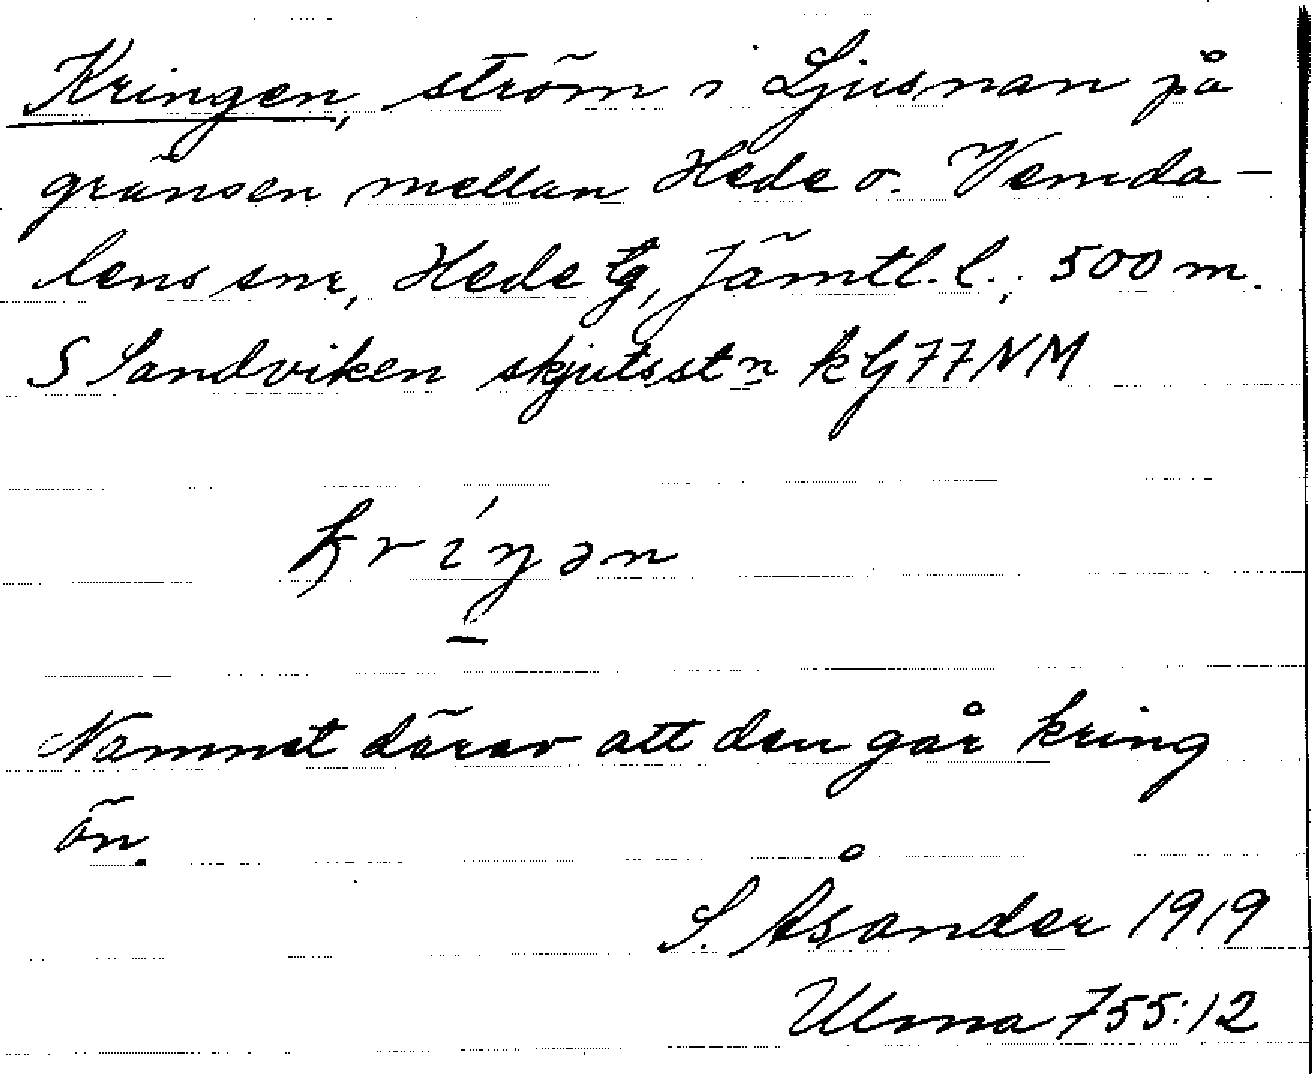 Kringen, ström i Ljusnan på
gränsen mellan Hede o. Vemda-
lens snr, Hede tg, Jämtl. l., 500 m.
S Sandviken skjutsstn kG77NM
kríŋən
Namnet därav att den går kring
ön.
S. Åsander 1919
Ulma 755:12